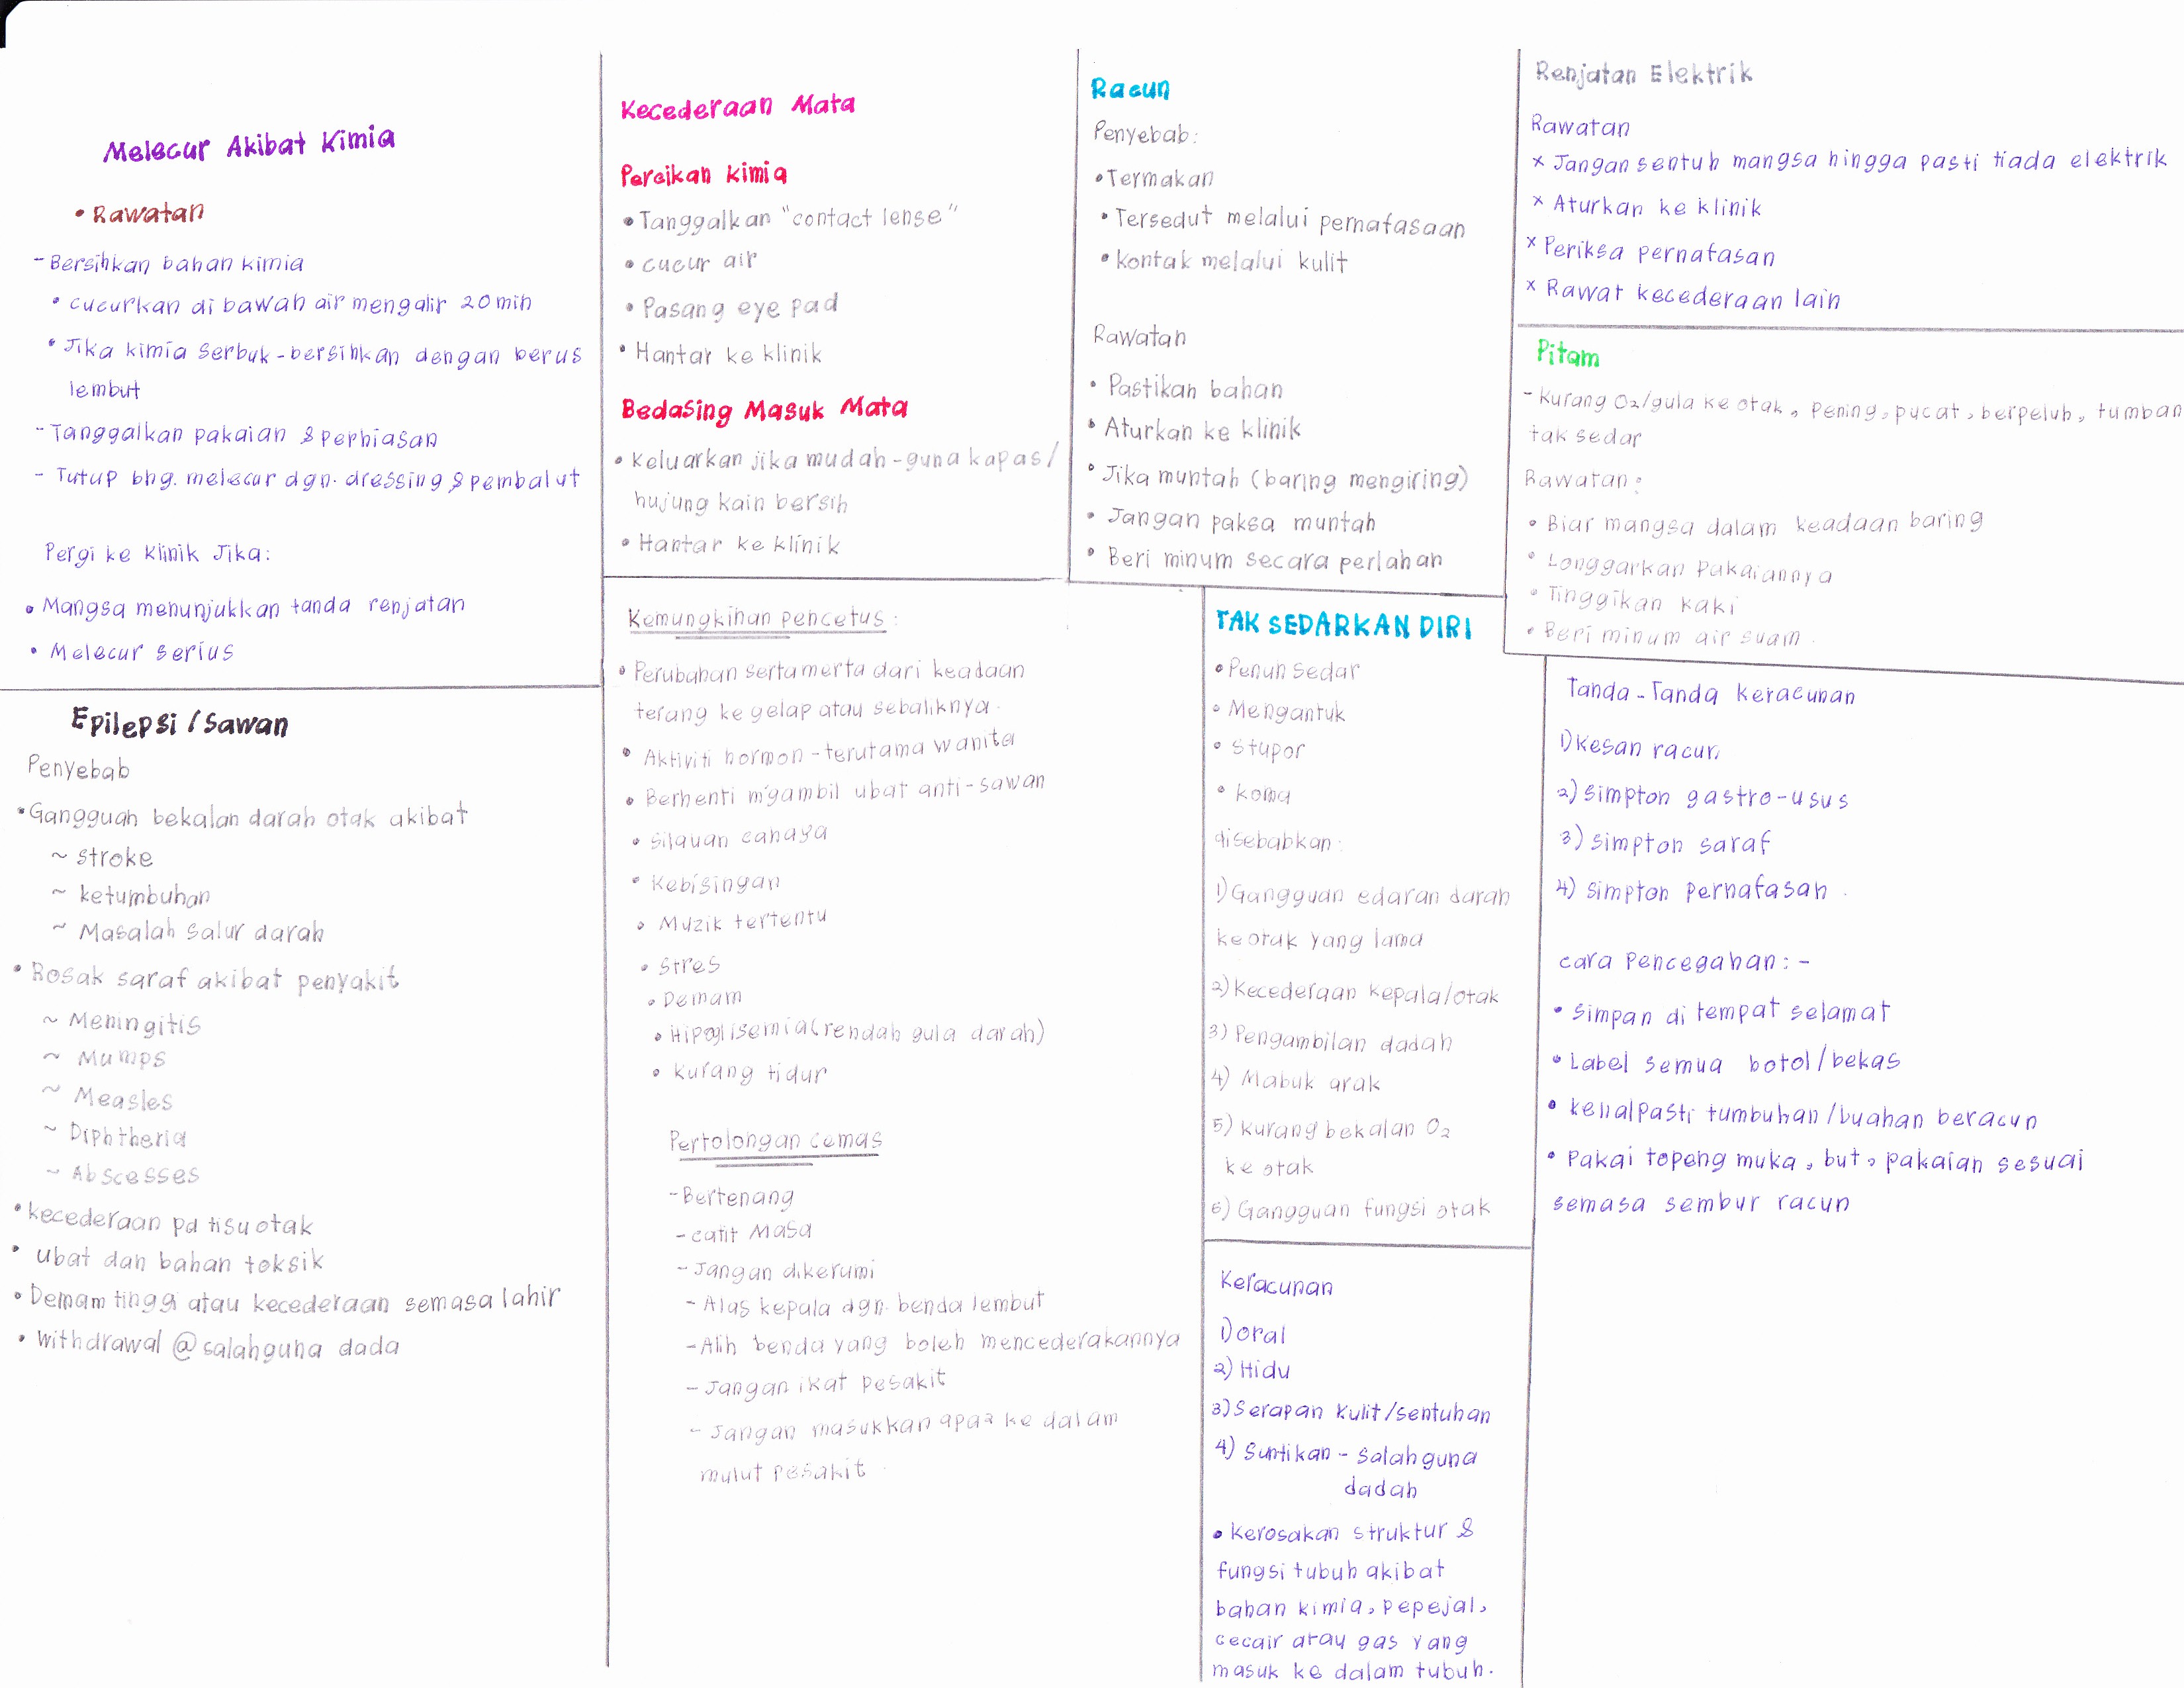 Melecur Akibat Kimia
• Rawatan
- Bersihkan bahan kimia
• cucurkan di bawah air mengalir 20 min
• Jika kimia serbuk - bersihkan dengan berus
lembut
- Tanggalkan pakaian & perhiasan
- Tutup bhg. melecur dgn. dressing & pembalut
Pergi ke klinik Jika:
• Mangsa menunjukkan tanda renjatan
• Melecur serius
Kecederaan Mata
Percikan kimia
• Tanggalkan "contact lense"
• cucur air
• Pasang eye pad
• Hantar ke klinik
Bedasing Masuk Mata
• Keluarkan jika mudah - guna kapas/
hujung kain bersih
• Hantar ke klinik
Racun
Penyebab:
• Termakan
• Tersedut melalui pernafasaan
• Kontak melalui kulit
Rawatan
• Pastikan bahan
• Aturkan ke klinik
• Jika muntah (baring mengiring)
• Jangan paksa muntah
• Beri minum secara perlahan
Renjatan Elektrik
Rawatan
x Jangan sentuh mangsa hingga pasti tiada elektrik
x Aturkan ke klinik
x Periksa pernafasan
x Rawat kecederaan lain
Pitam
- Kurang O2/gula ke otak, pening, pucat, berpeluh, tumban
tak sedar
Rawatan:
• Biar mangsa dalam keadaan baring
• Longgarkan pakaiannya
• Tinggikan kaki
• Beri minum air suam.
Epilepsi / Sawan
Penyebab
• Gangguan bekalan darah otak akibat
~ stroke
~ ketumbuhan
~ Masalah salur darah
• Rosak saraf akibat penyakit
~ Meningitis
~ Mumps
~ Measles
~ Diphtheria
~ Abscesses
• kecederaan pd tisu otak
• ubat dan bahan toksik
• Demam tinggi atau kecederaan semasa lahir
• withdrawal @ salahguna dada
Kemungkinan pencetus:
• Perubahan sertamerta dari keadaan
terang ke gelap atau sebaliknya.
• Aktiviti hormon - terutama wanita
• Berhenti m'gambil ubat anti-sawan
• Silauan cahaya
• Kebisingan
• Muzik tertentu
• Stres
• Demam
• Hipoglisemia (rendah gula darah)
• Kurang tidur
Pertolongan cemas
- Bertenang
- catit Masa
- Jangan dikerumi
- Alas kepala dgn. benda lembut
- Alih benda yang boleh mencederakannya
- Jangan ikat pesakit
- Jangan masukkan apa2 ke dalam
mulut pesakit.
TAK SEDARKAN DIRI
• Penuh Sedar
• Mengantuk
• stupor
• koma
disebabkan:
1) Gangguan edaran darah
ke otak yang lama
2) Kecederaan kepala/otak
3) Pengambilan dadah
4) Mabuk arak
5) kurang bekalan O2
ke otak
6) Gangguan fungsi otak
Keracunan
1) oral
2) Hidu
3) Serapan kulit/sentuhan
4) Suntikan - Salah guna
dadah
• Kerosakan struktur &
fungsi tubuh akibat
bahan kimia, pepejal,
cecair atau gas yang
masuk ke dalam tubuh.
Tanda-Tanda keracunan
1) Kesan racun
2) Simpton gastro-usus
3) Simpton saraf
4) Simpton Pernafasan.
cara Pencegahan: -
• Simpan di tempat selamat
• Label semua botol/bekas
• kenalpasti tumbuhan/buahan beracun
• Pakai topeng muka, but, pakaian sesuai
semasa sembur racun